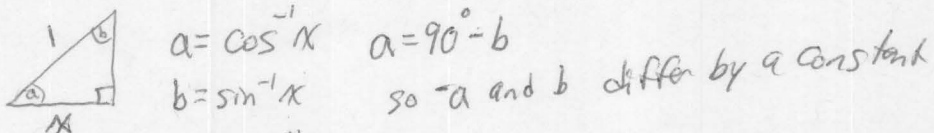 1 b a = cos⁻¹x a = 90° - b
a b = sin⁻¹x so -a and b differ by a constant
x